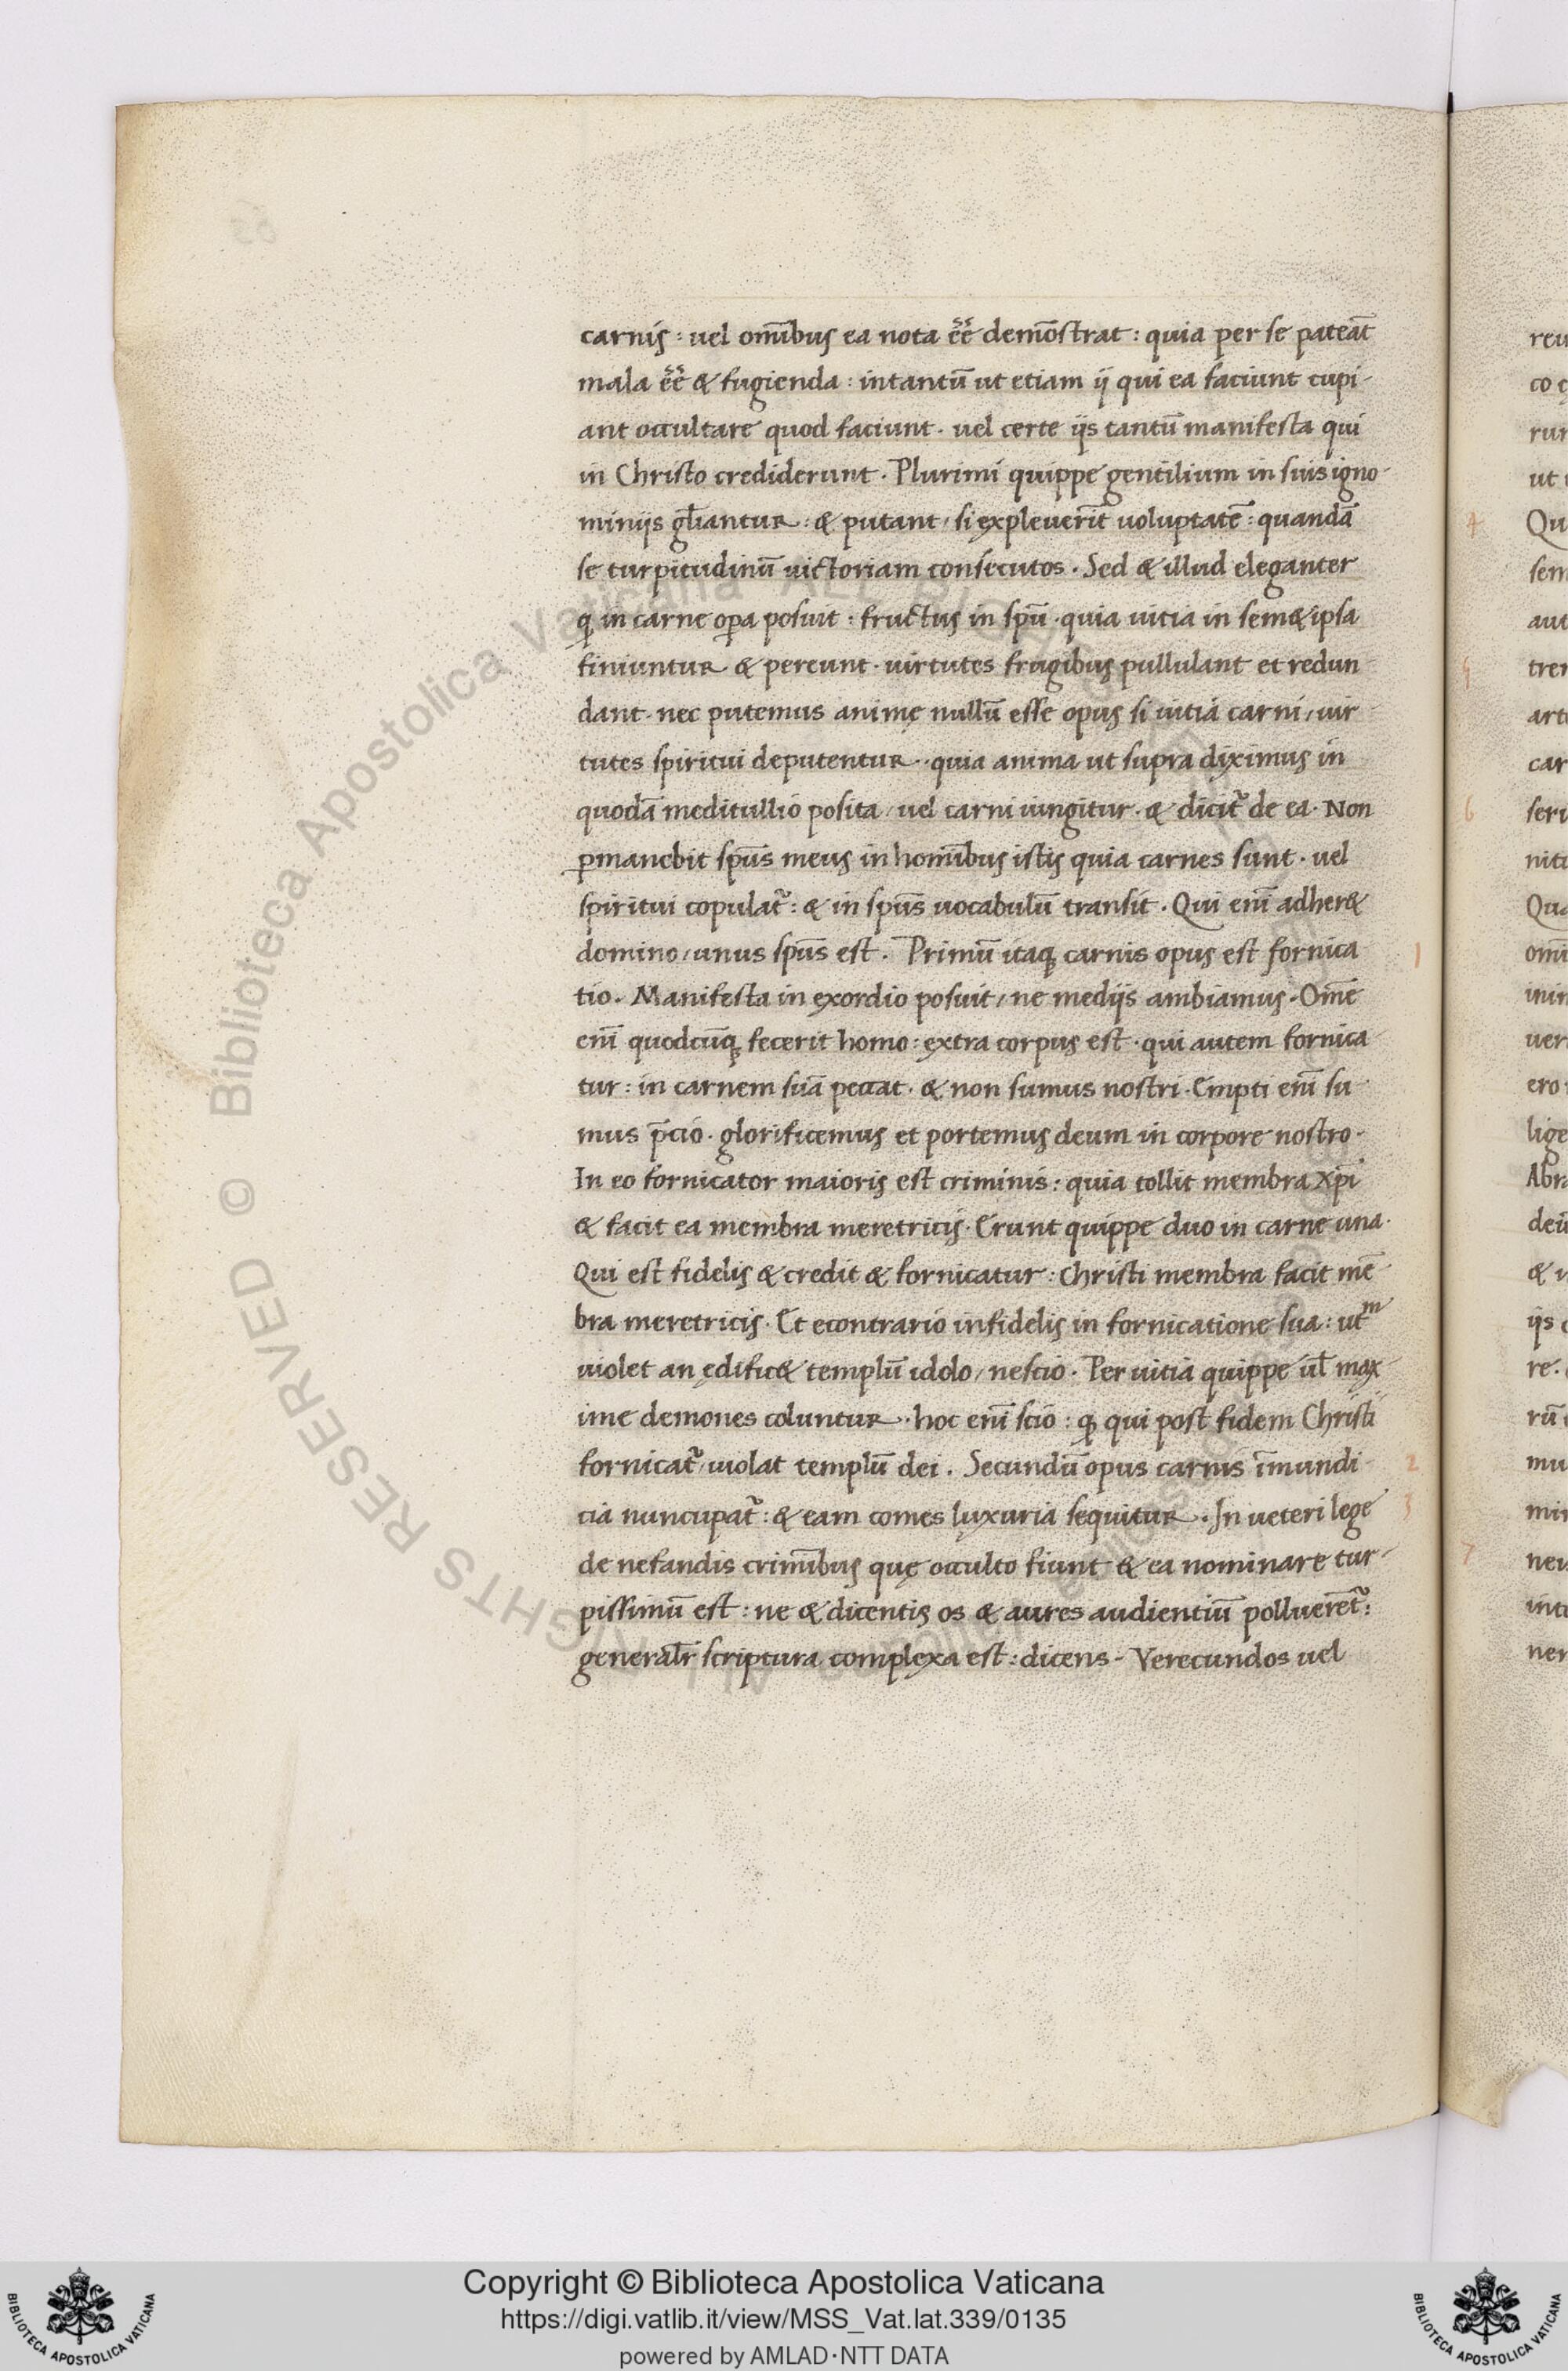 carnis : uel om̄ibus ea nota eē̃ demōstrat : quia per se pateāt
mala eē̃ & fugienda : intantū ut etiam ij qui ea faciunt cupi-
ant occultare quod faciunt · uel certe ijs tantū manifesta qui
in Christo crediderunt · Plurimi quippe gentilium in suis igno-
minijs gl̄iantur : & putant / si expleuerīt uoluptatē : quandā
se turpitudinū uictoriam consecutos · Sed & illud eleganter
ꝙ in carne oꝑa posuit : fructus in spū · quia uitia in sem&ipsa
finiuntur & pereunt · uirtutes frugibus pullulant et redun-
dant · nec putemus animę nullū esse opus si uitia carni / uir-
tutes spiritui deputentur · quia anima ut supra diximus in
quodā meditullio posita / uel carni iungitur · & dicit᷑ de ea · Non
ꝑmanebit sp̄us meus in hom̄ibus istis quia carnes sunt · uel
spiritui copulat᷑ : & in sp̄us uocabulū transit · Qui enī adher&
domino / unus sp̄us est · Primū itaq̨ carnis opus est fornica
tio · Manifesta in exordio posuit / ne medijs ambiamus · Om̄e
enī quodcūq̨ fecerit homo : extra corpus est · qui autem fornica-
tur : in carnem suā peccat · & non sumus nostri · Empti enī su-
mus p̄cio · glorificemus et portemus deum in corpore nostro ·
In eo fornicator maioris est criminis : quia tollit membra xp̄i
& facit ea membra meretricis · Erunt quippe duo in carne una ·
Qui est fidelis & credit & fornicatur : Christi membra facit mē-
bra meretricis · Et econtrario infidelis in fornicatione sua : utᵐ
uiolet an ędific& templū idolo / nescio · Per uitia quippe ul̄ max-
ime demones coluntur · hoc enī scio : ꝙ qui post fidem Christi
fornicat᷑ / uiolat templū dei · Secundū opus carnis īmundi-
cia nuncupat᷑ : & eam comes luxuria sequitur · In ueteri lege
de nefandis crim̄ibus quę occulto fiunt & ea nominare tur-
pissimū est : ne & dicentis os & aures audientiū polluerēt᷑ :
general̄r scriptura complexa est : dicens - Verecundos uel
1
2
3
4
6
7
Copyright © Biblioteca Apostolica Vaticana
https://digi.vatlib.it/view/MSS_Vat.lat.339/0135
powered by AMLAD·NTT DATA
BIBLIOTECA APOSTOLICA VATICANA
BIBLIOTECA APOSTOLICA VATICANA